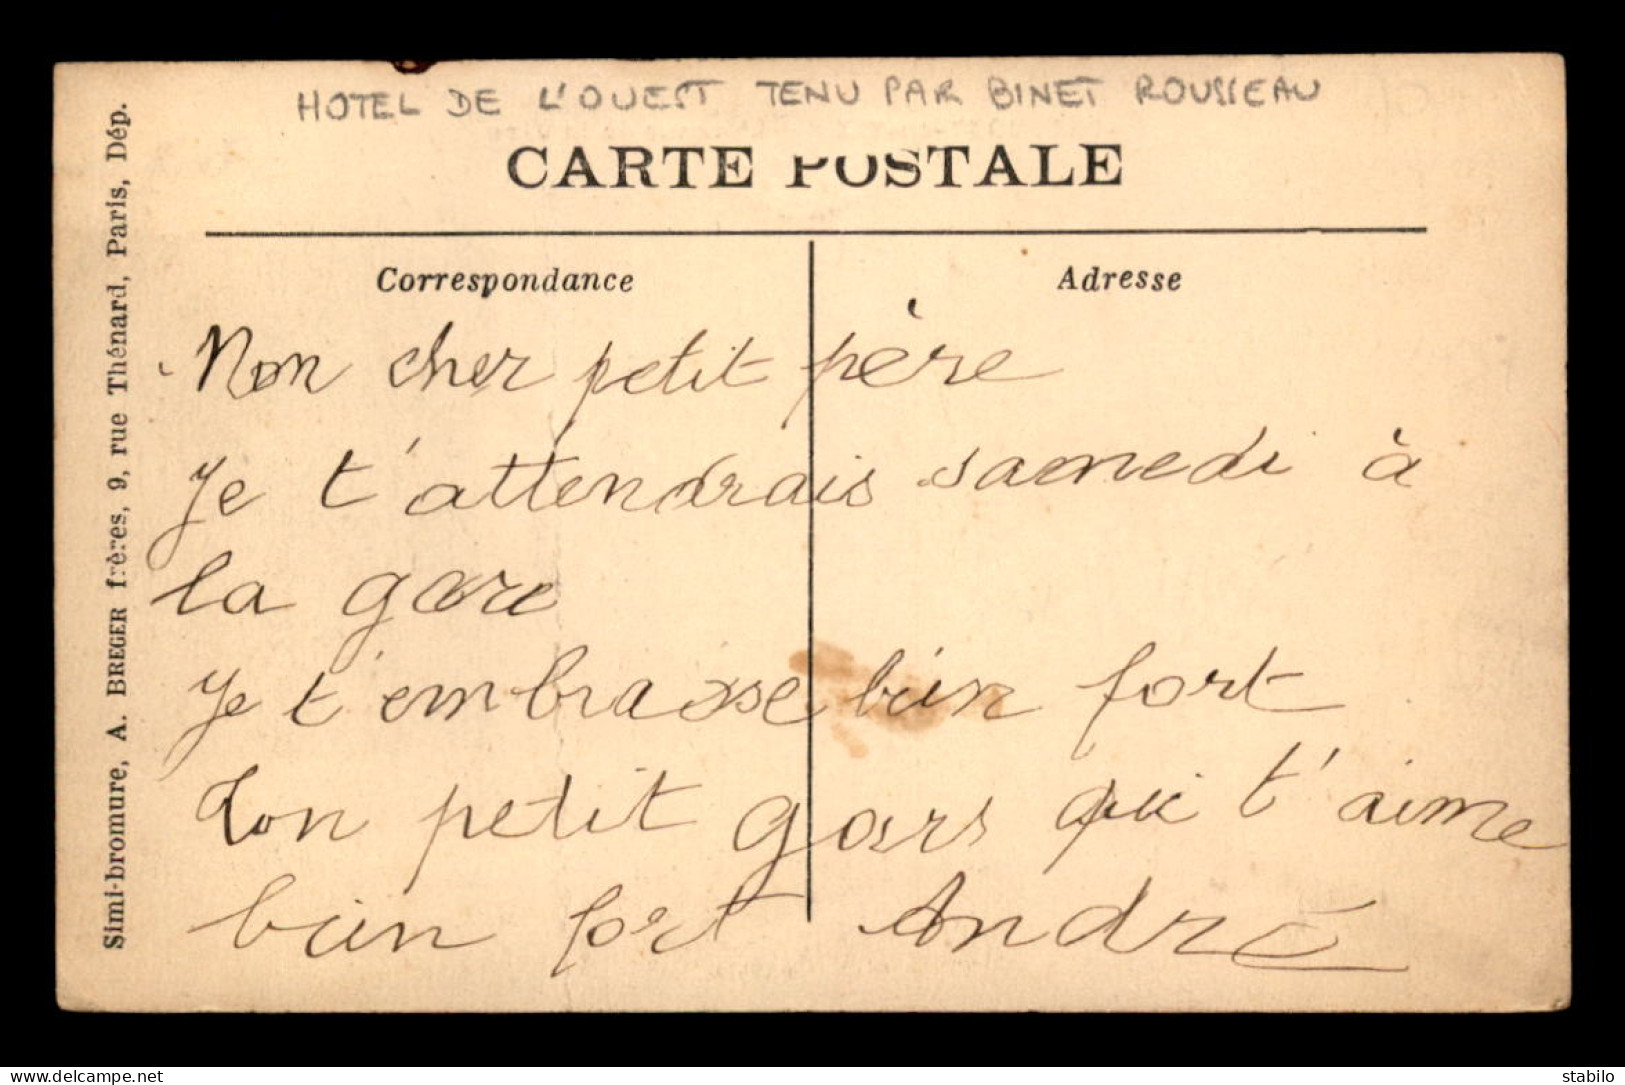 HOTEL DE L'OUEST TENU PAR BINET ROUSSEAU
CARTE POSTALE
Correspondance
Adresse
Mon cher petit père
Je t'attendrais samedi à
la gare
Je t'embrasse bien fort
Ton petit gars qui t'aime
bien fort André
Simi-bromure, A. BREGER frères, 9, rue Thénard, Paris, Dép.
www.delcampe.net
stabilo